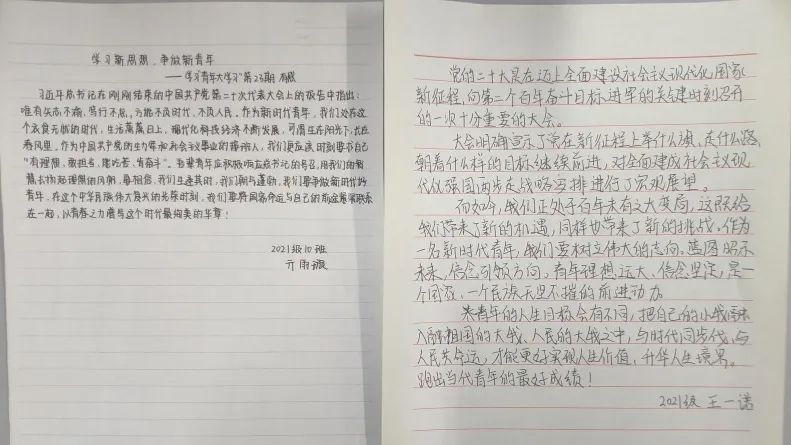 学习新思想，争做新青年
——学习"青年大学习"第23期有感
习近平总书记在刚刚结束的中国共产党第二十次代表大会上的报告中指出：
唯有矢志不渝、笃行不怠，方能不负时代、不负人民。作为新时代青年，我们处在这
个衣食无忧的时代，生活蒸蒸日上，现代化科技经济不断发展，可谓生在阳光下，长在
春风里。作为中国共产党的生力军和社会主义事业的接班人，我们更应该时刻要求自己
"有理想，敢担当，能吃苦，肯奋斗"。吾辈青年应积极响应总书记的号召，用我们的智
慧去扬起理想的风帆，要相信，我们生逢其时，我们朝气蓬勃，我们要争做新时代好
青年，在这个中华民族伟大复兴的光荣时刻，我们要将国家命运与自己的前途紧密联系
在一起，以青春之力谱写这个时代最绚美的华章！
2021级10班
亓雨
党的二十大是在迈上全面建设社会主义现代化国家
新征程，向第二个百年奋斗目标进军的关键时刻召开
的一次十分重要的大会。
大会明确宣示了党在新征程上举什么旗、走什么路、
朝着什么样的目标继续前进，对全面建成社会主义现
代化强国两步走战略安排进行了宏观展望。
而如今，我们正处于百年未有之大变局，这既给
我们带来了新的机遇，同样也带来了新的挑战。作为
一名新时代青年，我们要树立伟大的志向。蓝图昭示
未来，信念引领方向，青年理想远大、信念坚定，是一
个国家、一个民族无坚不摧的前进动力。
青年的人生目标会有不同，把自己的小我融
入祖国的大我、人民的大我之中，与时代同步伐、与
人民共命运，才能更好实现人生价值，升华人生境界。
跑出当代青年的最好成绩！
2021级 王一诺